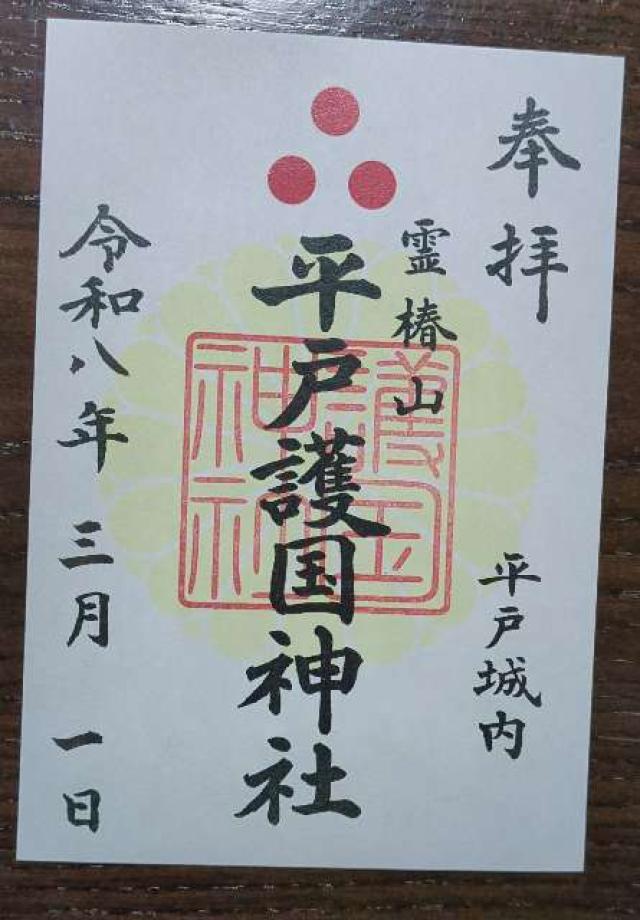 奉拝
平戸城内
霊椿山
平戸護国神社
護国
神社
令和八年 三月 一日